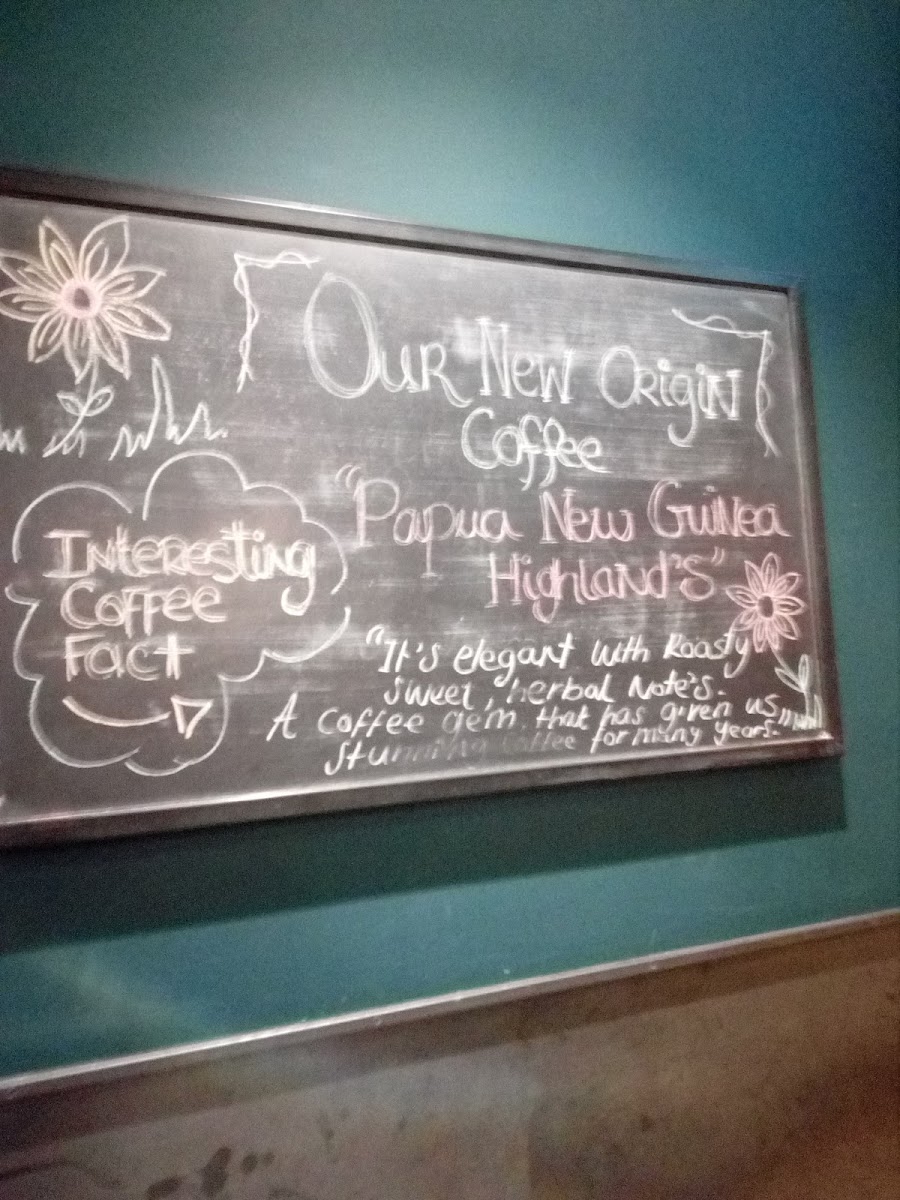 Our New Origin
Coffee
"Papua New Guinea
Highland's"
Interesting
Coffee
Fact
"It's elegant with Roasty
sweet, herbal Note's.
A coffee gem that has given us
stunning coffee for many years."